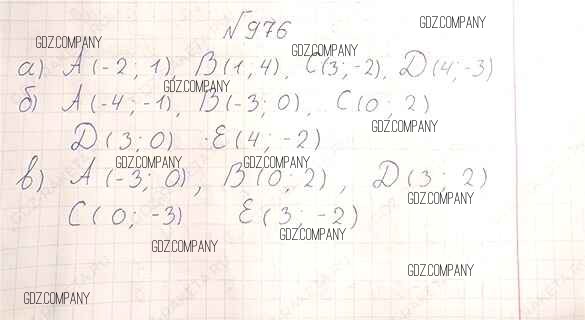 №976
а) A(-2; 1), B(1, 4), C(3; -2), D(4; -3)
б) A(-4; -1), B(-3; 0), C(0; 2)
D(3; 0) E(4; -2)
в) A(-3; 0), B(0; 2), D(3; 2)
C(0; -3) E(3; -2)
GDZ.COMPANY
GDZ.COMPANY
GDZ.COMPANY
GDZ.COMPANY
GDZ.COMPANY
GDZ.COMPANY
GDZ.COMPANY
GDZ.COMPANY
GDZ.COMPANY
GDZ.COMPANY
GDZ.COMPANY
GDZ.COMPANY